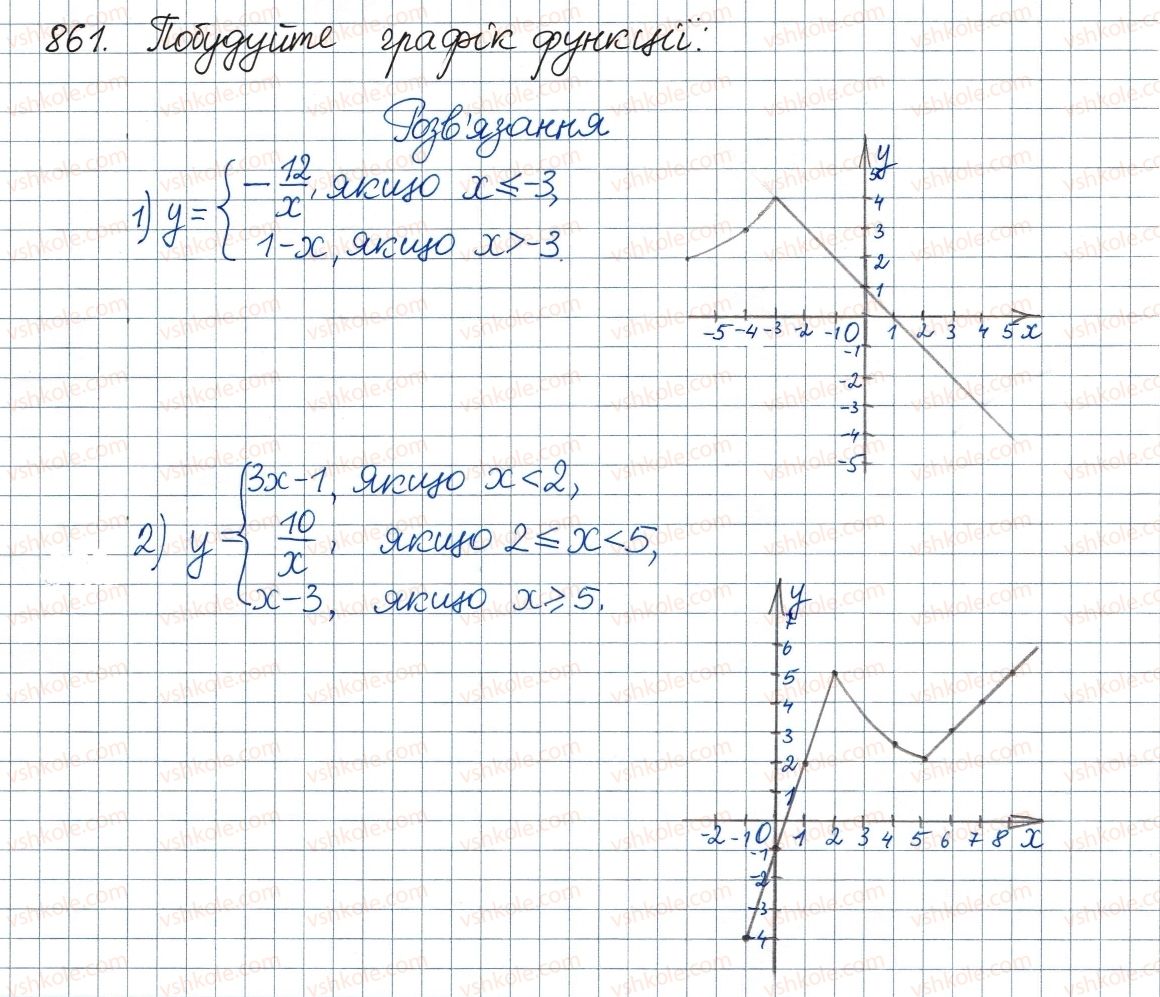 861. Побудуйте графік функції:
Розв'язання
1) y = { -12/x, якщо x ≤ -3,
1-x, якщо x > -3.
y
5
4
3
2
1
-5 -4 -3 -2 -1 0 1 2 3 4 5 x
-1
-2
-3
-4
-5
2) y = { 3x-1, якщо x < 2,
10/x, якщо 2 ≤ x < 5,
x-3, якщо x ≥ 5.
y
7
6
5
4
3
2
1
-2 -1 0 1 2 3 4 5 6 7 8 x
-1
-2
-3
-4
vshkole.com